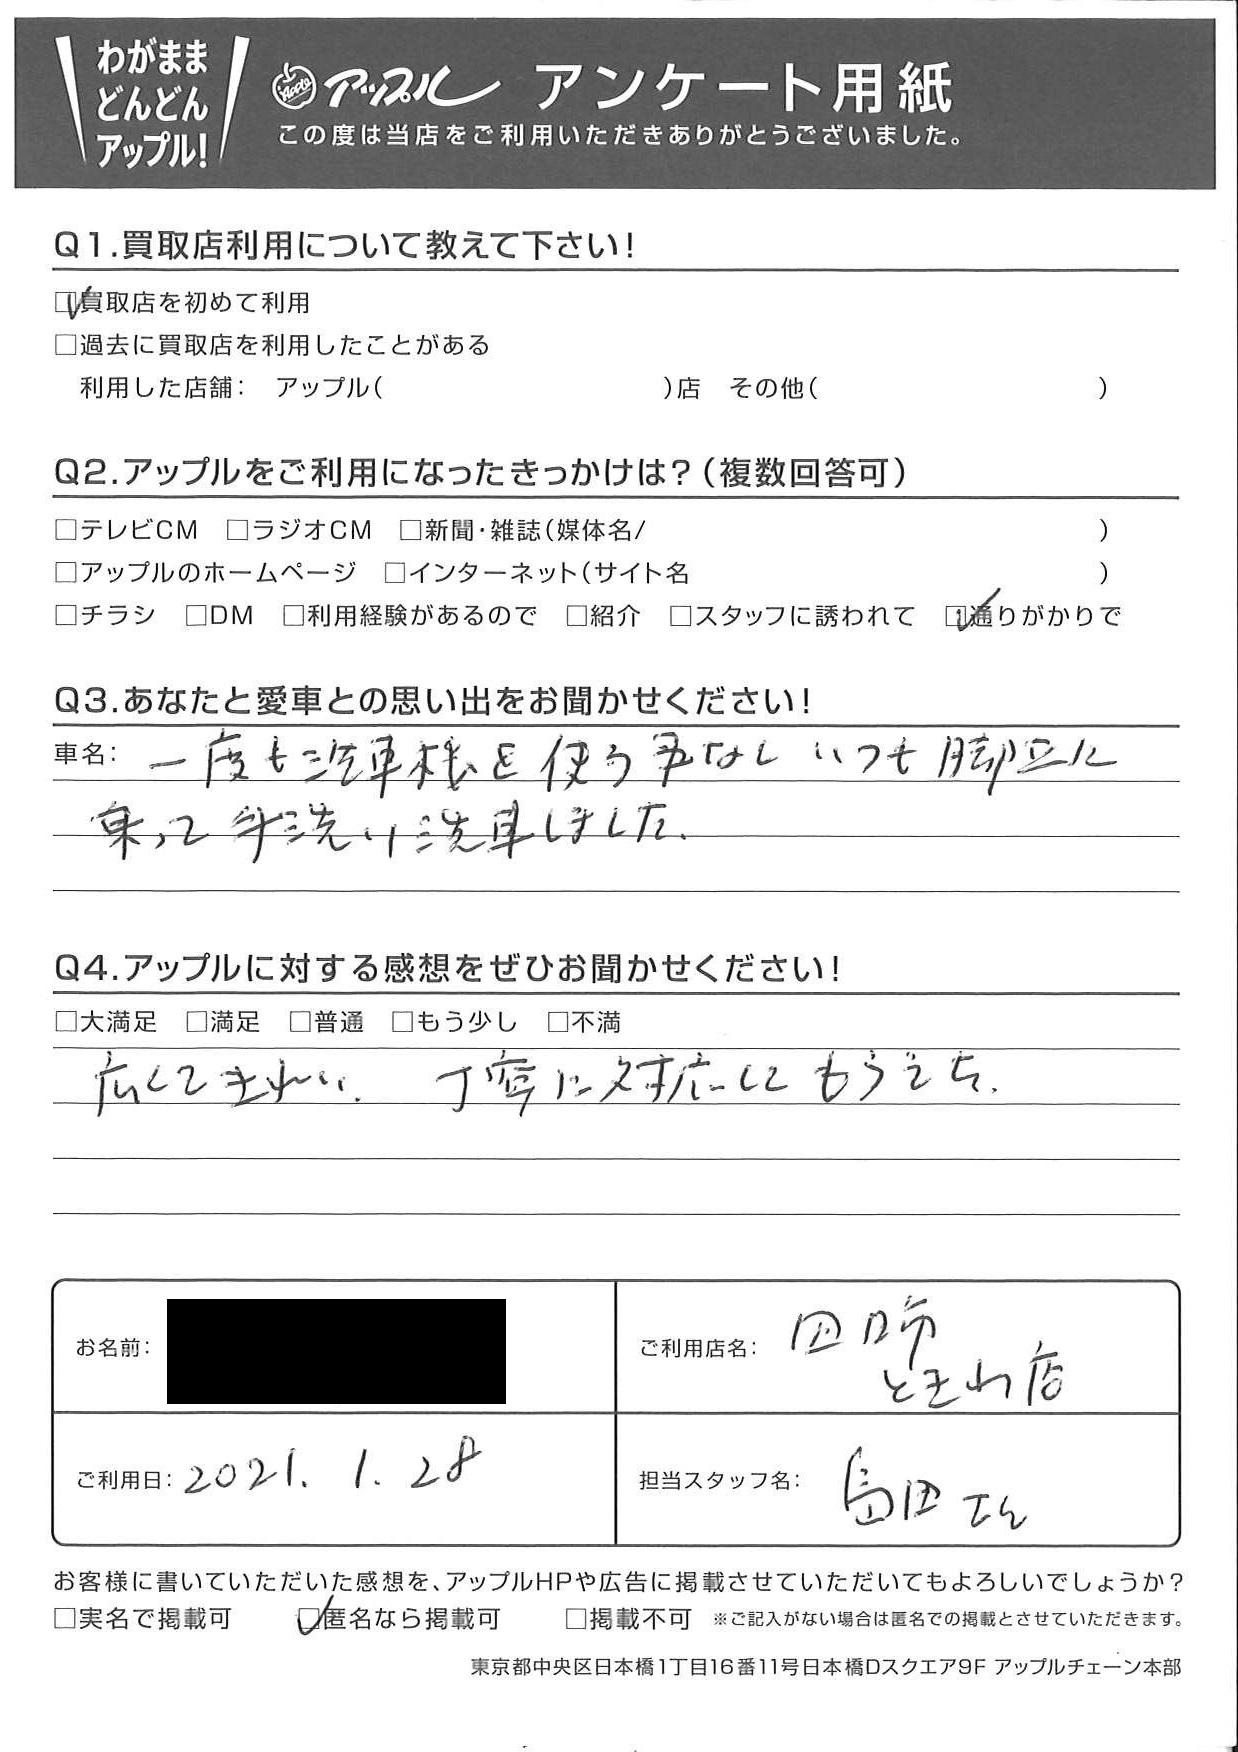 わがまま
どんどん
アップル!
Apple アップル アンケート用紙
この度は当店をご利用いただきありがとうございました。
Q1.買取店利用について教えて下さい!
□買取店を初めて利用
□過去に買取店を利用したことがある
利用した店舗: アップル( )店 その他( )
Q2.アップルをご利用になったきっかけは?(複数回答可)
□テレビCM □ラジオCM □新聞・雑誌(媒体名/ )
□アップルのホームページ □インターネット(サイト名 )
□チラシ □DM □利用経験があるので □紹介 □スタッフに誘われて □通りがかりで
Q3.あなたと愛車との思い出をお聞かせください!
車名: 一度も洗車機を使う事なし いつも脚立に
乗って手洗い洗車しました.
Q4.アップルに対する感想をぜひお聞かせください!
□大満足 □満足 □普通 □もう少し □不満
広くてきれい. 丁寧に対応してもらえた.
お名前:
ご利用店名: 四日市
ときわ店
ご利用日: 2021. 1. 28
担当スタッフ名: 島田さん
お客様に書いていただいた感想を、アップルHPや広告に掲載させていただいてもよろしいでしょうか?
□実名で掲載可 □匿名なら掲載可 □掲載不可 ※ご記入がない場合は匿名での掲載とさせていただきます。
東京都中央区日本橋1丁目16番11号日本橋Dスクエア9F アップルチェーン本部